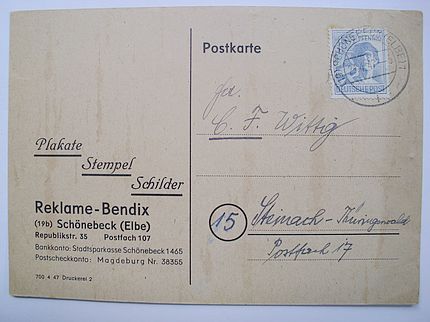 Postkarte
PFENNIG
DEUTSCHE POST
SCHÖNEBECK (ELBE) 1
Fa.
C. F. Wittig
Plakate
Stempel
Schilder
Reklame-Bendix
(19b) Schönebeck (Elbe)
Republikstr. 35 Postfach 107
Bankkonto: Stadtsparkasse Schönebeck 1465
Postscheckkonto: Magdeburg Nr. 38355
15 Steinach-Thüringerwald
Postfach 17
700 4 47 Druckerei 2